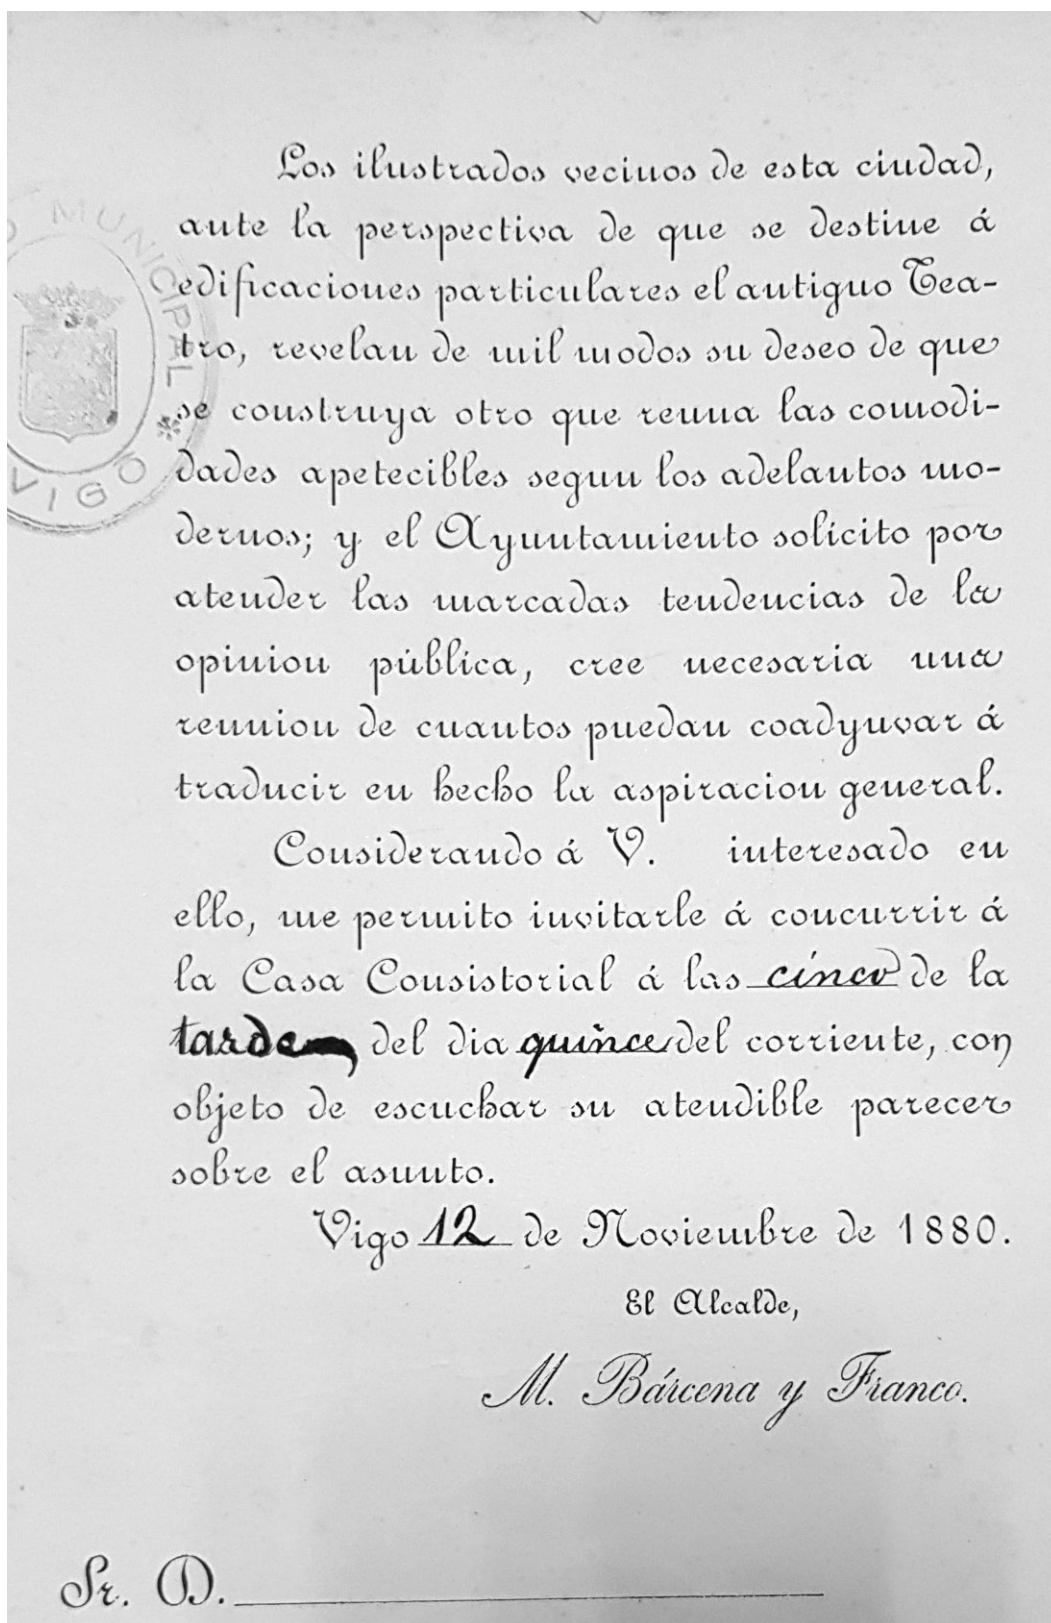 Los ilustrados vecinos de esta ciudad,
ante la perspectiva de que se destine á
edificaciones particulares el antiguo Tea-
tro, revelan de mil modos su deseo de que
se construya otro que reuna las comodi-
dades apetecibles segun los adelantos mo-
dernos; y el Ayuntamiento solícito por
atender las marcadas tendencias de la
opinion pública, cree necesaria una
reunion de cuantos puedan coadyuvar á
traducir en hecho la aspiracion general.
Considerando á V. interesado en
ello, me permito invitarle á concurrir á
la Casa Consistorial á las cinco de la
tarde del dia quince del corriente, con
objeto de escuchar su atendible parecer
sobre el asunto.
Vigo 12 de Noviembre de 1880.
El Alcalde,
M. Bárcena y Franco.
Sr. D.
MUNICIPAL
VIGO